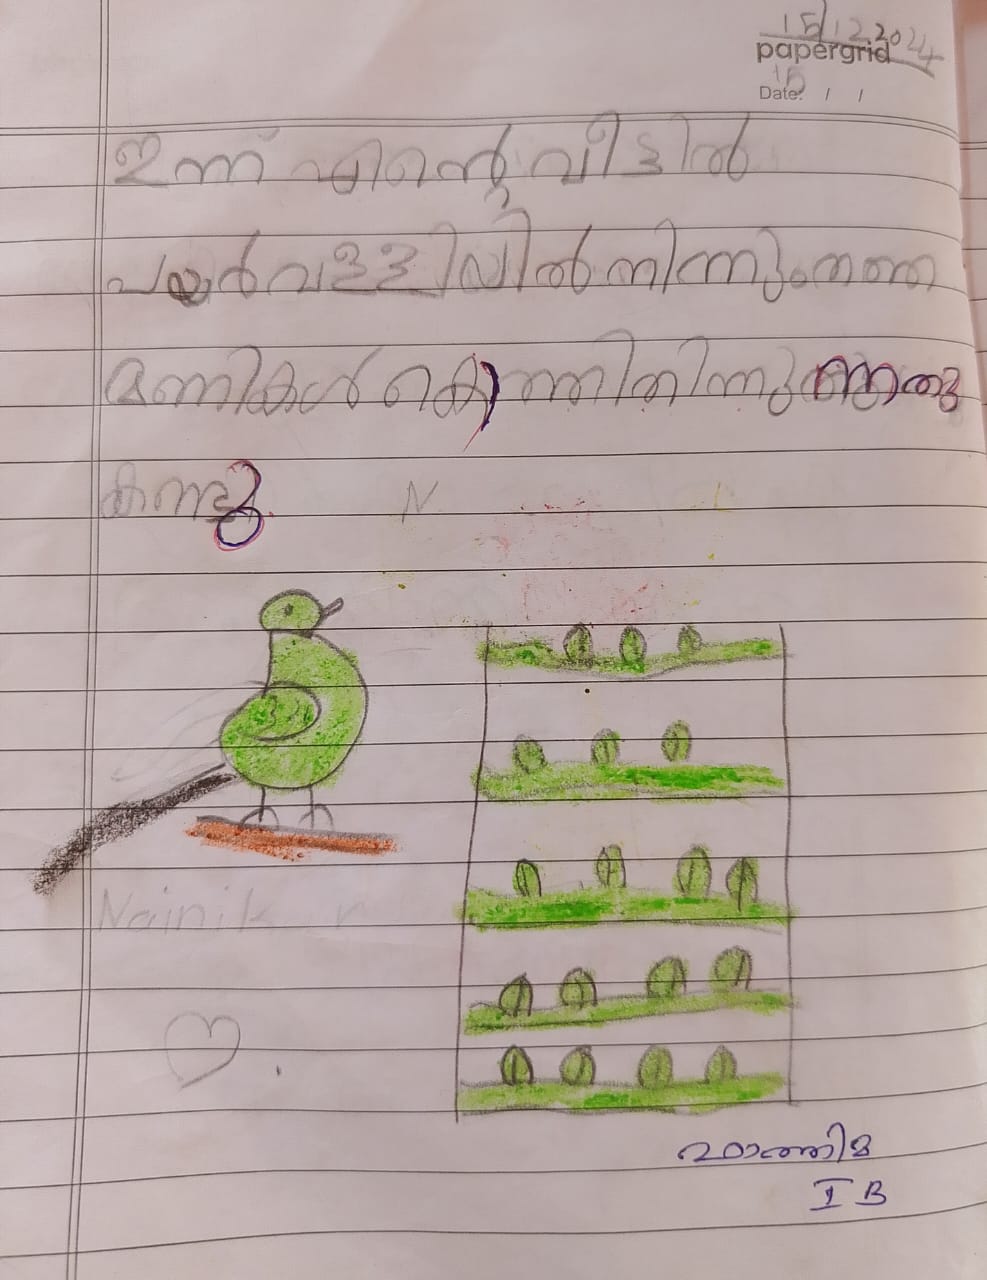 15/12.2024
papergrid
Date: / /
ഇന്ന് എന്റെ വീട്ടിൽ
പയർവള്ളിയിൽ നിന്നും തത്ത
മണികൾ കൊത്തിതിന്നുന്നതു
കണ്ടു
N
Nainik
ഫാത്തിമ
I B